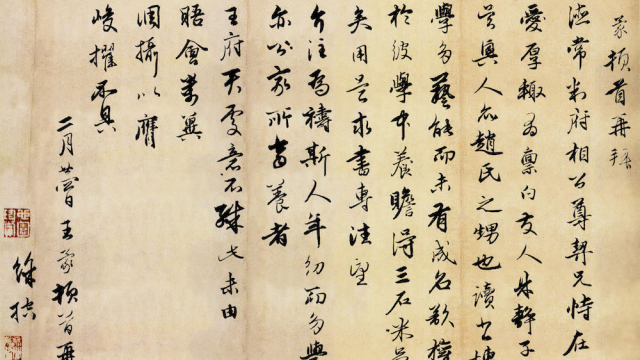 蒙頓首再拜
德常判府相公尊契兄恃在
愛厚輒為稟白友人朱靜子
吳興人亦趙氏之甥也讀書博
學多藝能而未有成名欲
於彼學中養贍得三石米
矣用是求書專注望
介注為禱斯人年幼而多學
亦公家所當養者
王府天意不殊此未由
晤會萬冀
調攝以膺
峻擢不具
二月日王蒙頓首再
徐